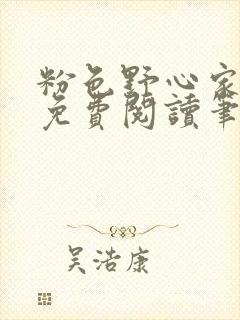 粉色野心家
免費閱讀筆
吴浩康